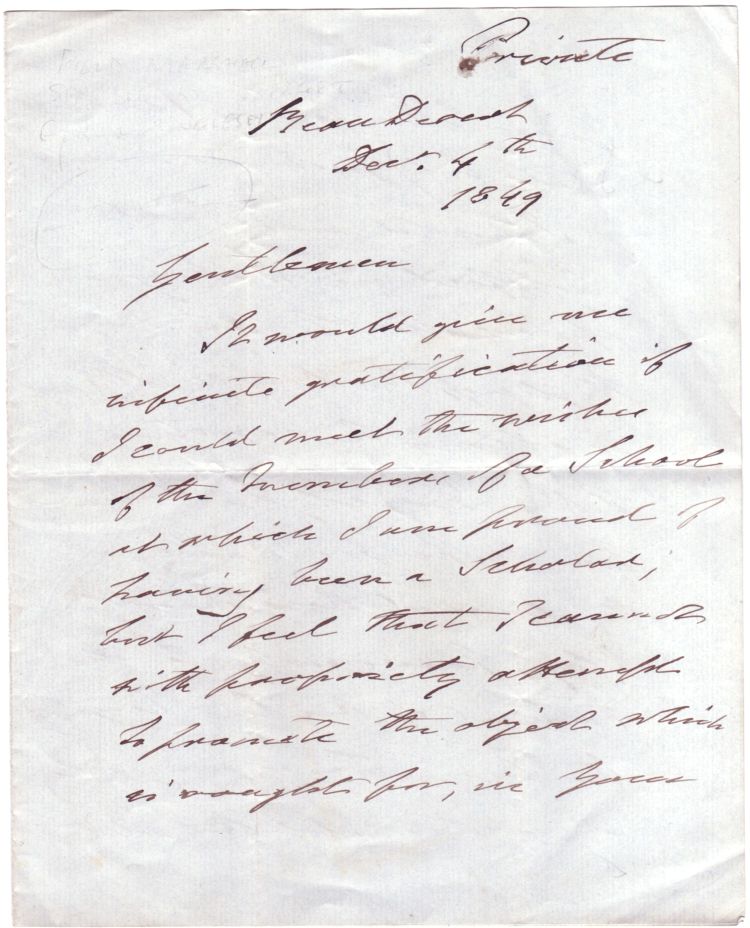 Private
Beau Desert
Dec. 4th
1849
Gentlemen
It would give me
infinite gratification if
I could meet the wishes
of the Members of a School
at which I am proud of
having been a Scholar,
but I feel that I cannot
with propriety attempt
to promote the object which
is sought for, in your